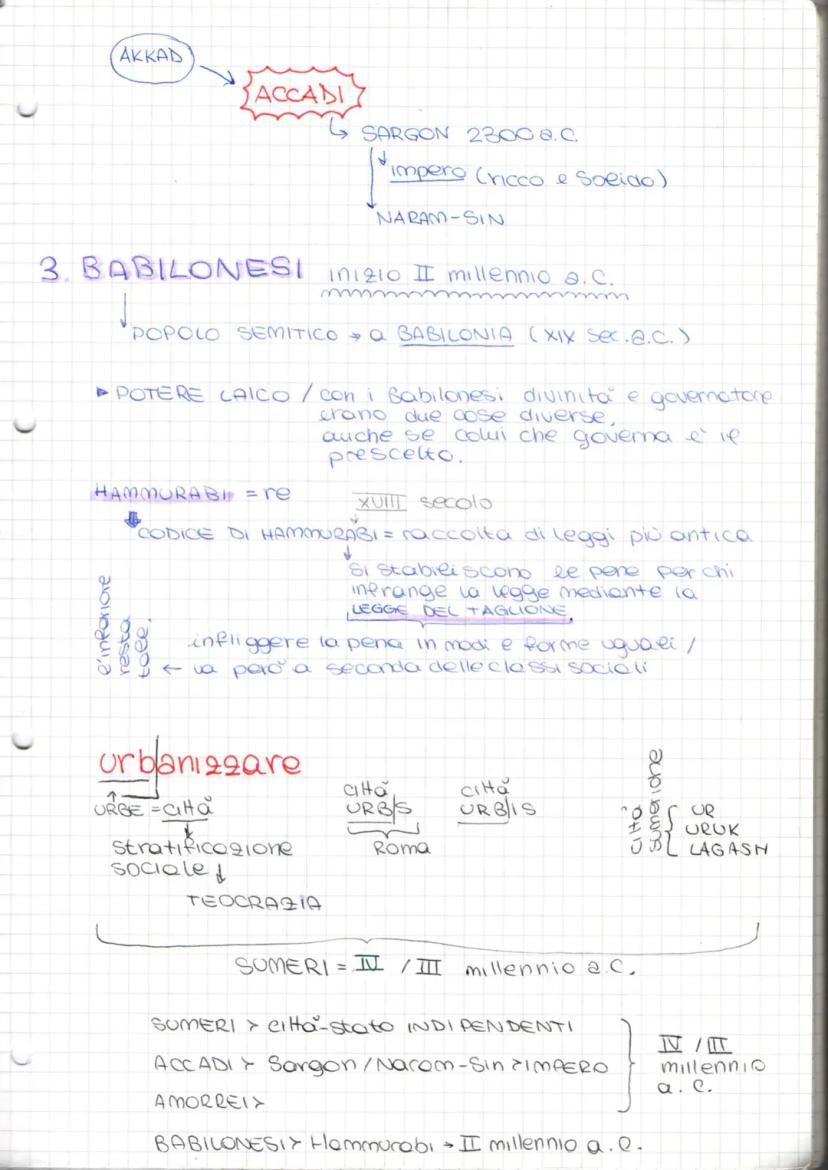 AKKAD
ACCADI
SARGON 2300 a.C.
impero (ricco e solido)
NARAM-SIN
3. BABILONESI inizio II millennio a.C.
POPOLO SEMITICO → a BABILONIA (XIX sec. a.C.)
▸ POTERE LAICO / con i Babilonesi divinità e governatore
erano due cose diverse,
auche se colui che governa è il
prescelto.
HAMMURABI = re XVIII secolo
CODICE DI HAMMURABI = raccolta di leggi più antica
si stabiliscono le pene per chi
infrange la legge mediante la
LEGGE DEL TAGLIONE
infliggere la pena in modi e forme uguali /
← va però a seconda delle classi sociali
l'inferiore
resta
tale.
urbanizzare
URBE = città
stratificazione
sociale ↓
TEOCRAZIA
città
URB/S
Roma
città
URB/IS
città
sumerione
UR
URUK
LAGASH
SUMERI = IV / III millennio a.C.
SUMERI > città-stato INDIPENDENTI
ACCADI > Sargon / Narom-Sin > IMPERO
AMORREI >
IV / III
millennio
a. C.
BABILONESI > Hammurabi → II millennio a.C.